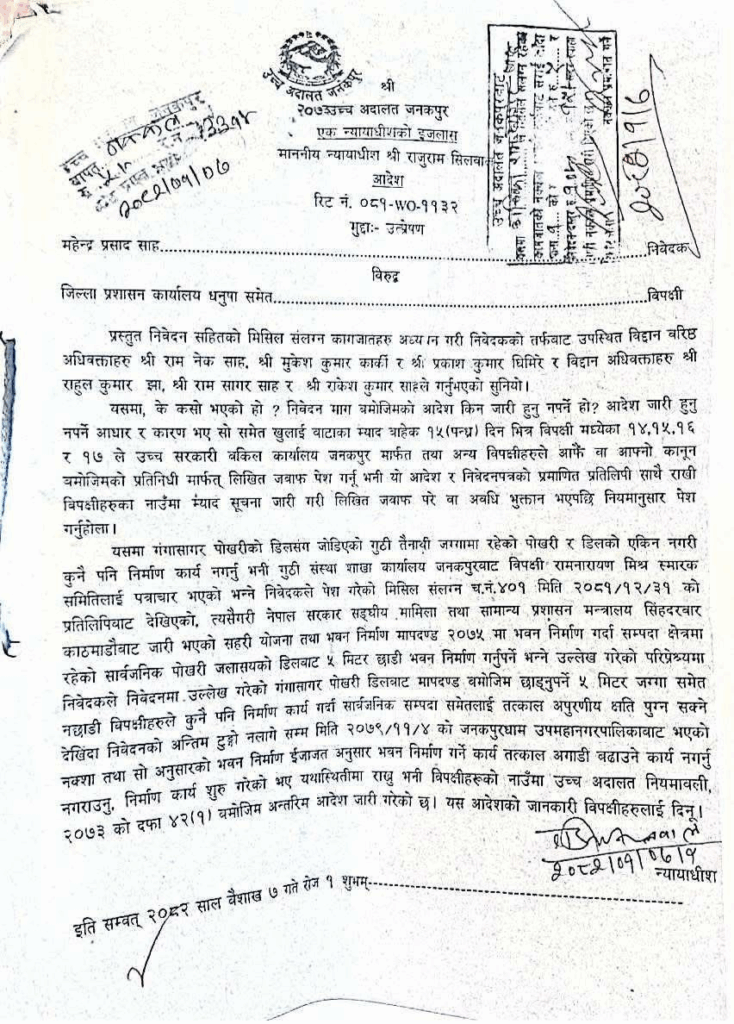 उच्च अदालत जनकपुर
श्री
२०७३उच्च अदालत जनकपुर
एक न्यायाधीशको इजलास
माननीय न्यायाधीश श्री राजुराम सिलवाल
आदेश
रिट नं. ०८१-WO-११३२
मुद्दाः- उत्प्रेषण
नक्कल
२०८२/०१/०७
महेन्द्र प्रसाद साह..........निवेदक
विरुद्ध
जिल्ला प्रशासन कार्यालय धनुषा समेत..........विपक्षी
प्रस्तुत निवेदन सहितको मिसिल संलग्न कागजातहरु अध्ययन गरी निवेदकको तर्फबाट उपस्थित विद्वान वरिष्ठ
अधिवक्ताहरु श्री राम नेक साह, श्री मुकेश कुमार कार्की र श्री प्रकाश कुमार घिमिरे र विद्वान अधिवक्ताहरु श्री
राहुल कुमार झा, श्री राम सागर साह र श्री राकेश कुमार साहले गर्नुभएको सुनियो।
यसमा, के कसो भएको हो ? निवेदन माग बमोजिमको आदेश किन जारी हुनु नपर्ने हो? आदेश जारी हुनु
नपर्ने आधार र कारण भए सो समेत खुलाई बाटाका म्याद बाहेक १५(पन्ध्र) दिन भित्र विपक्षी मध्येका १४,१५,१६
र १७ ले उच्च सरकारी वकिल कार्यालय जनकपुर मार्फत तथा अन्य विपक्षीहरुले आफैं वा आफ्नो कानून
बमोजिमको प्रतिनिधी मार्फत् लिखित जवाफ पेश गर्नू भनी यो आदेश र निवेदनपत्रको प्रमाणित प्रतिलिपी साथै राखी
विपक्षीहरुका नाउँमा म्याद सूचना जारी गरी लिखित जवाफ परे वा अवधि भुक्तान भएपछि नियमानुसार पेश
गर्नुहोला।
यसमा गंगासागर पोखरीको डिलसंग जोडिएको गुठी तैनाथी जग्गामा रहेको पोखरी र डिलको एकिन नगरी
कुनै पनि निर्माण कार्य नगर्नु भनी गुठी संस्था शाखा कार्यालय जनकपुरबाट विपक्षी रामनारायण मिश्र स्मारक
समितिलाई पत्राचार भएको भन्ने निवेदकले पेश गरेको मिसिल संलग्न च.नं.४०१ मिति २०८१/१२/३१ को
प्रतिलिपिबाट देखिएको, त्यसैगरी नेपाल सरकार सङ्घीय मामिला तथा सामान्य प्रशासन मन्त्रालय सिंहदरवार
काठमाडौंबाट जारी भएको सहरी योजना तथा भवन निर्माण मापदण्ड २०७५ मा भवन निर्माण गर्दा सम्पदा क्षेत्रमा
रहेको सार्वजनिक पोखरी जलासयको डिलबाट ५ मिटर छाडी भवन निर्माण गर्नुपर्ने भन्ने उल्लेख गरेको परिप्रेश्र्यमा
निवेदकले निवेदनमा उल्लेख गरेको गंगासागर पोखरी डिलबाट मापदण्ड बमोजिम छाड्नुपर्ने ५ मिटर जग्गा समेत
नछाडी विपक्षीहरुले कुनै पनि निर्माण कार्य गर्दा सार्वजनिक सम्पदा समेतलाई तत्काल अपुरणीय क्षति पुग्न सक्ने
देखिंदा निवेदनको अन्तिम टुङ्गो नलागे सम्म मिति २०७९/११/४ को जनकपुरधाम उपमहानगरपालिकाबाट भएको
नक्शा तथा सो अनुसारको भवन निर्माण ईजाजत अनुसार भवन निर्माण गर्ने कार्य तत्काल अगाडी बढाउने कार्य नगर्नु
नगराउनु, निर्माण कार्य शुरु गरेको भए यथास्थितीमा राख्नु भनी विपक्षीहरूको नाउँमा उच्च अदालत नियमावली,
२०७३ को दफा ४२(१) बमोजिम अन्तरिम आदेश जारी गरेको छ। यस आदेशको जानकारी विपक्षीहरुलाई दिनू।
न्यायाधीश
इति सम्वत् २०८२ साल वैशाख ७ गते रोज १ शुभम्----------